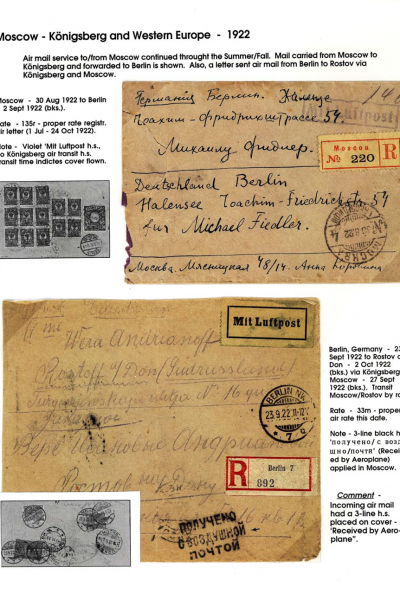 Moscow - Königsberg and Western Europe - 1922
Air mail service to/from Moscow continued throught the Summer/Fall. Mail carried from Moscow to
Königsberg and forwarded to Berlin is shown. Also, a letter sent air mail from Berlin to Rostov via
Königsberg and Moscow.
Moscow - 30 Aug 1922 to Berlin
2 Sept 1922 (bks.).
Rate - 135r - proper rate registr.
air letter (1 Jul - 24 Oct 1922).
Note - Violet 'Mit Luftpost h.s.
to Königsberg air transit h.s.
transit time indictes cover flown.
Германия Берлин. Халензе
Luftpost
Иоахим-Фридрихштрассе 54.
Михаилу Фидлер.
Moscou
№ 220 R
Deutschland Berlin
Halensee Joachim-Friedrichstr 54
für Michael Fiedler.
Москва. Мясницкая 48/14. Анна
Mit Luftpost
Wera Andrianoff
Rostoff Don
BERLIN N.
23.9.22.11-12V.
* 7 a
R
Berlin 7
892
Ростов
ПОЛУЧЕНО
С ВОЗДУШНОЙ
ПОЧТОЙ
Berlin, Germany - 23
Sept 1922 to Rostov o
Don - 2 Oct 1922
(bks.) via Königsberg
Moscow - 27 Sept
1922 (bks.). Transit
Moscow/Rostov by ra
Rate - 33m - proper
air rate this date.
Note - 3-line black h
'получено/с возд
шно/почтя' (Receiv
ed by Aeroplane)
applied in Moscow.
Comment -
Incoming air mail
had a 3-line h.s.
placed on cover -
"Received by Aero-
plane".